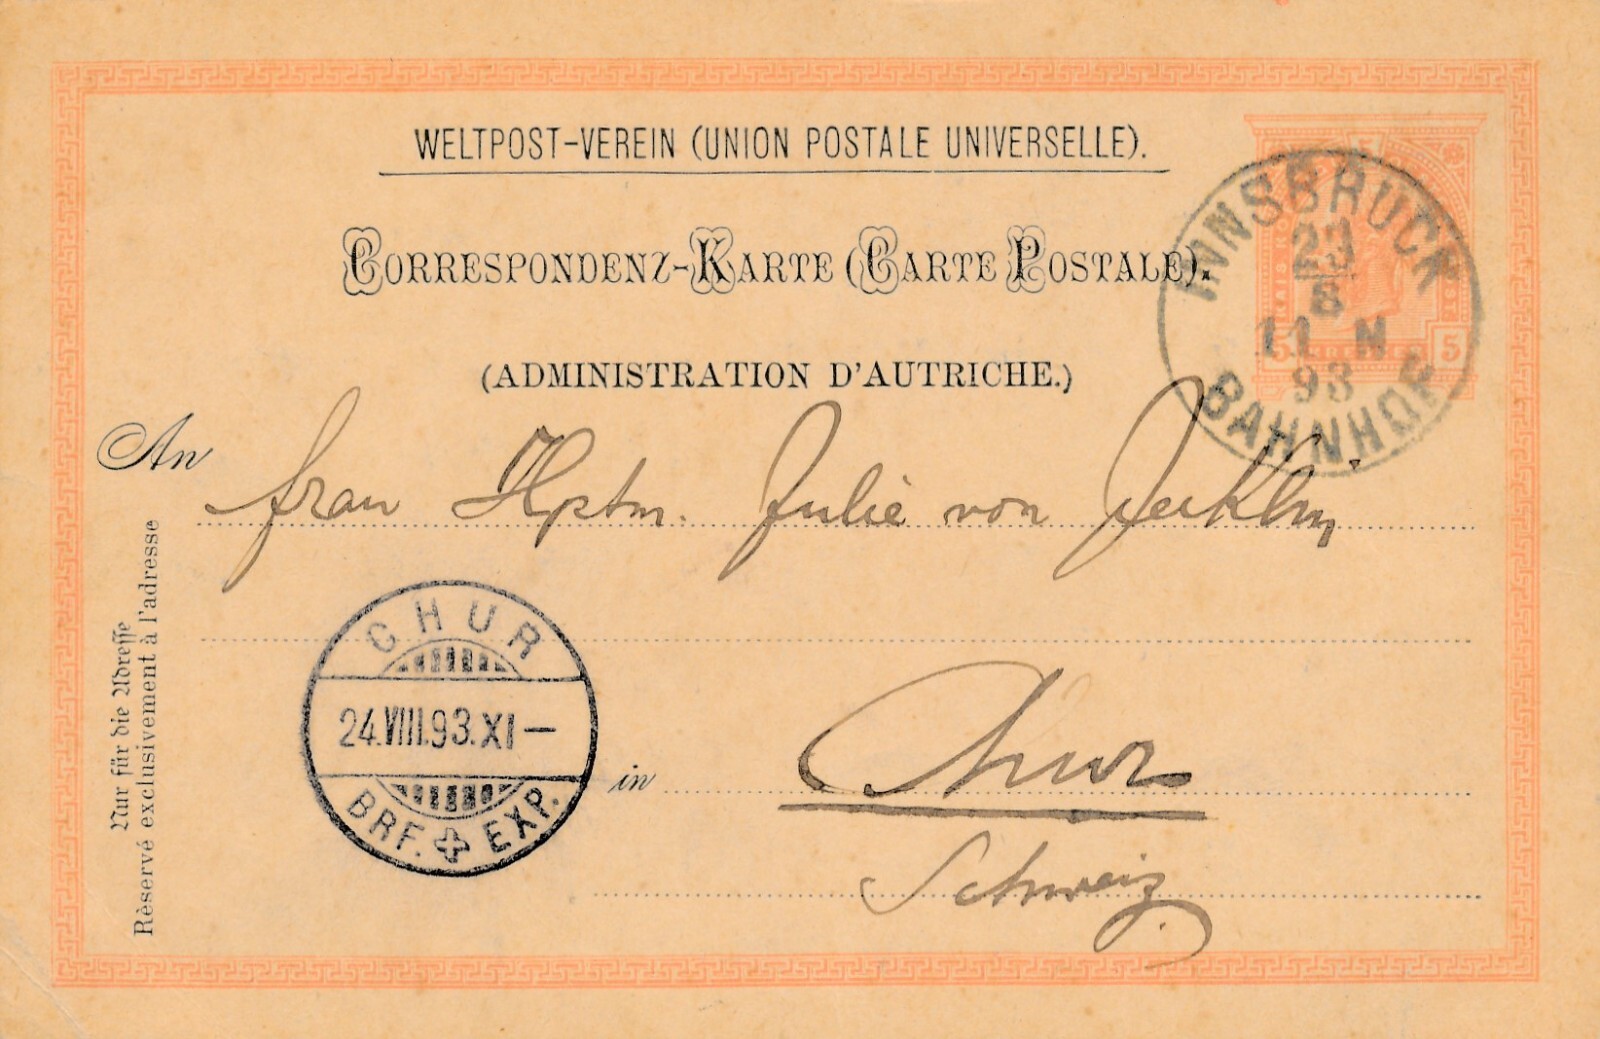 WELTPOST-VEREIN (UNION POSTALE UNIVERSELLE).
CORRESPONDENZ-KARTE (CARTE POSTALE).
(ADMINISTRATION D'AUTRICHE.)
INNSBRUCK
23
8
11 N
93
BAHNHOF
5 5
An Frau Hptm. Julie von Jecklin
Nur für die Adresse
Rèservé exclusivement à l'adresse
CHUR
24.VIII.93.XI–
BRF. EXP.
in Chur
Schweiz.